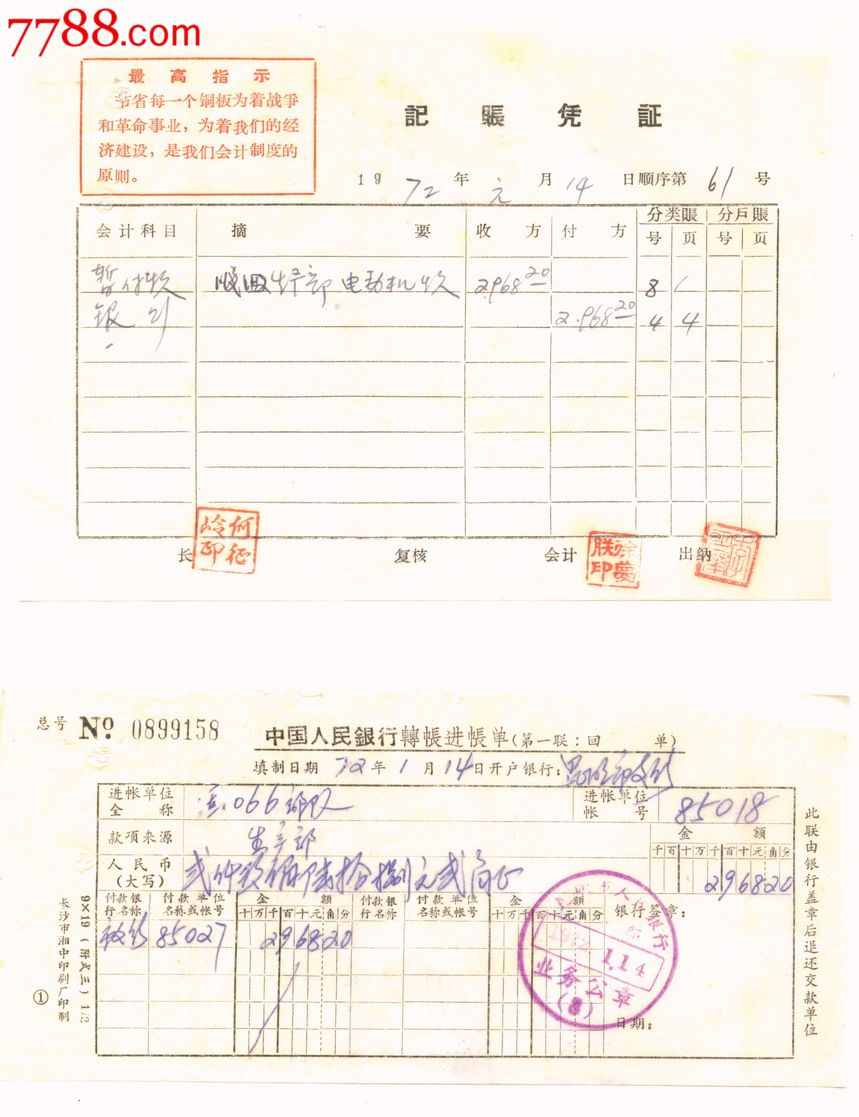 7788.com
最高指示
节省每一个铜板为着战争
和革命事业，为着我们的经
济建设，是我们会计制度的
原则。
記賬凭証
1972年元月14日顺序第61号
会计科目 摘要 收方 付方 分类賬 分戶賬
号 页 号 页
暂付款 电动机款 2968.20 8 1
银行 2.968.20 4 4
何征岭印
徐梦朕印
长 复核 会计 出纳
总号 No 0899158
中国人民銀行轉帳进帳单(第一联:回单)
填制日期 72年1月14日开户银行:
进帐单位全称 066部队
进帐单位帐号 85018
款项来源 生产部
金额
千百十万千百十元角分
人民币(大写) 贰仟玖佰陆拾捌元贰角正
296820
付款银行名称 付款单位名称或帐号 金额 十万千百十元角分 付款银行名称 付款单位名称或帐号 金额 十万千百十元角分 银行签章:
85027 296820
人民银行
1972.1.14
业务公章
(8)
日期:
此联由银行盖章后退还交款单位
9×19(卅式三)1/2
长沙市湘中印刷厂印制
①